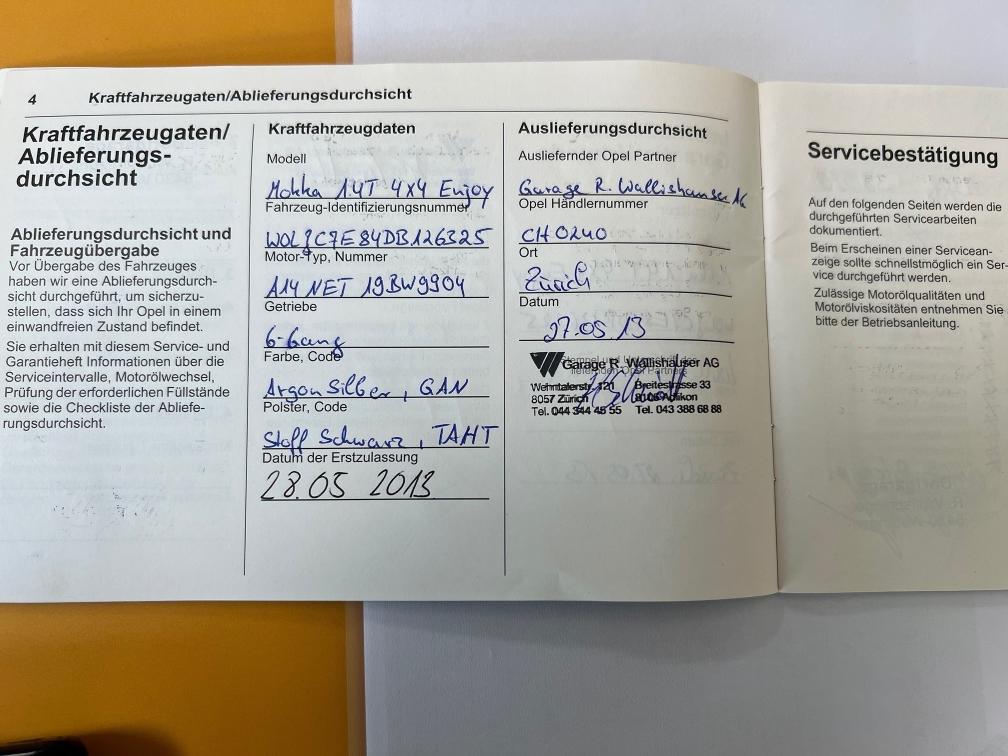 4 Kraftfahrzeugaten/Ablieferungsdurchsicht
Kraftfahrzeugaten/
Ablieferungs-
durchsicht
Ablieferungsdurchsicht und
Fahrzeugübergabe
Vor Übergabe des Fahrzeuges
haben wir eine Ablieferungsdurch-
sicht durchgeführt, um sicherzu-
stellen, dass sich Ihr Opel in einem
einwandfreien Zustand befindet.
Sie erhalten mit diesem Service- und
Garantieheft Informationen über die
Serviceintervalle, Motorölwechsel,
Prüfung der erforderlichen Füllstände
sowie die Checkliste der Abliefe-
rungsdurchsicht.
Kraftfahrzeugdaten
Modell
Mokka 1.4T 4x4 Enjoy
Fahrzeug-Identifizierungsnummer
WOLJC7E84DB126325
Motor-Typ, Nummer
A14 NET 19BW9904
Getriebe
6-Gang
Farbe, Code
Argon Silber, GAN
Polster, Code
Stoff Schwarz, TAHT
Datum der Erstzulassung
28.05 2013
Auslieferungsdurchsicht
Ausliefernder Opel Partner
Garage R. Wallishauser AG
Opel Händlernummer
CH0240
Ort
Zürich
Datum
27.05.13
Stempel und Unterschrift des
liefernden Opel Partners
Garage R. Wallishauser AG
Wehntalerstr. 121 Breitestrasse 33
8057 Zürich 8106 Adlikon
Tel. 044 344 45 55 Tel. 043 388 68 88
Servicebestätigung
Auf den folgenden Seiten werden die
durchgeführten Servicearbeiten
dokumentiert.
Beim Erscheinen einer Servicean-
zeige sollte schnellstmöglich ein Ser-
vice durchgeführt werden.
Zulässige Motorölqualitäten und
Motorölviskositäten entnehmen Sie
bitte der Betriebsanleitung.